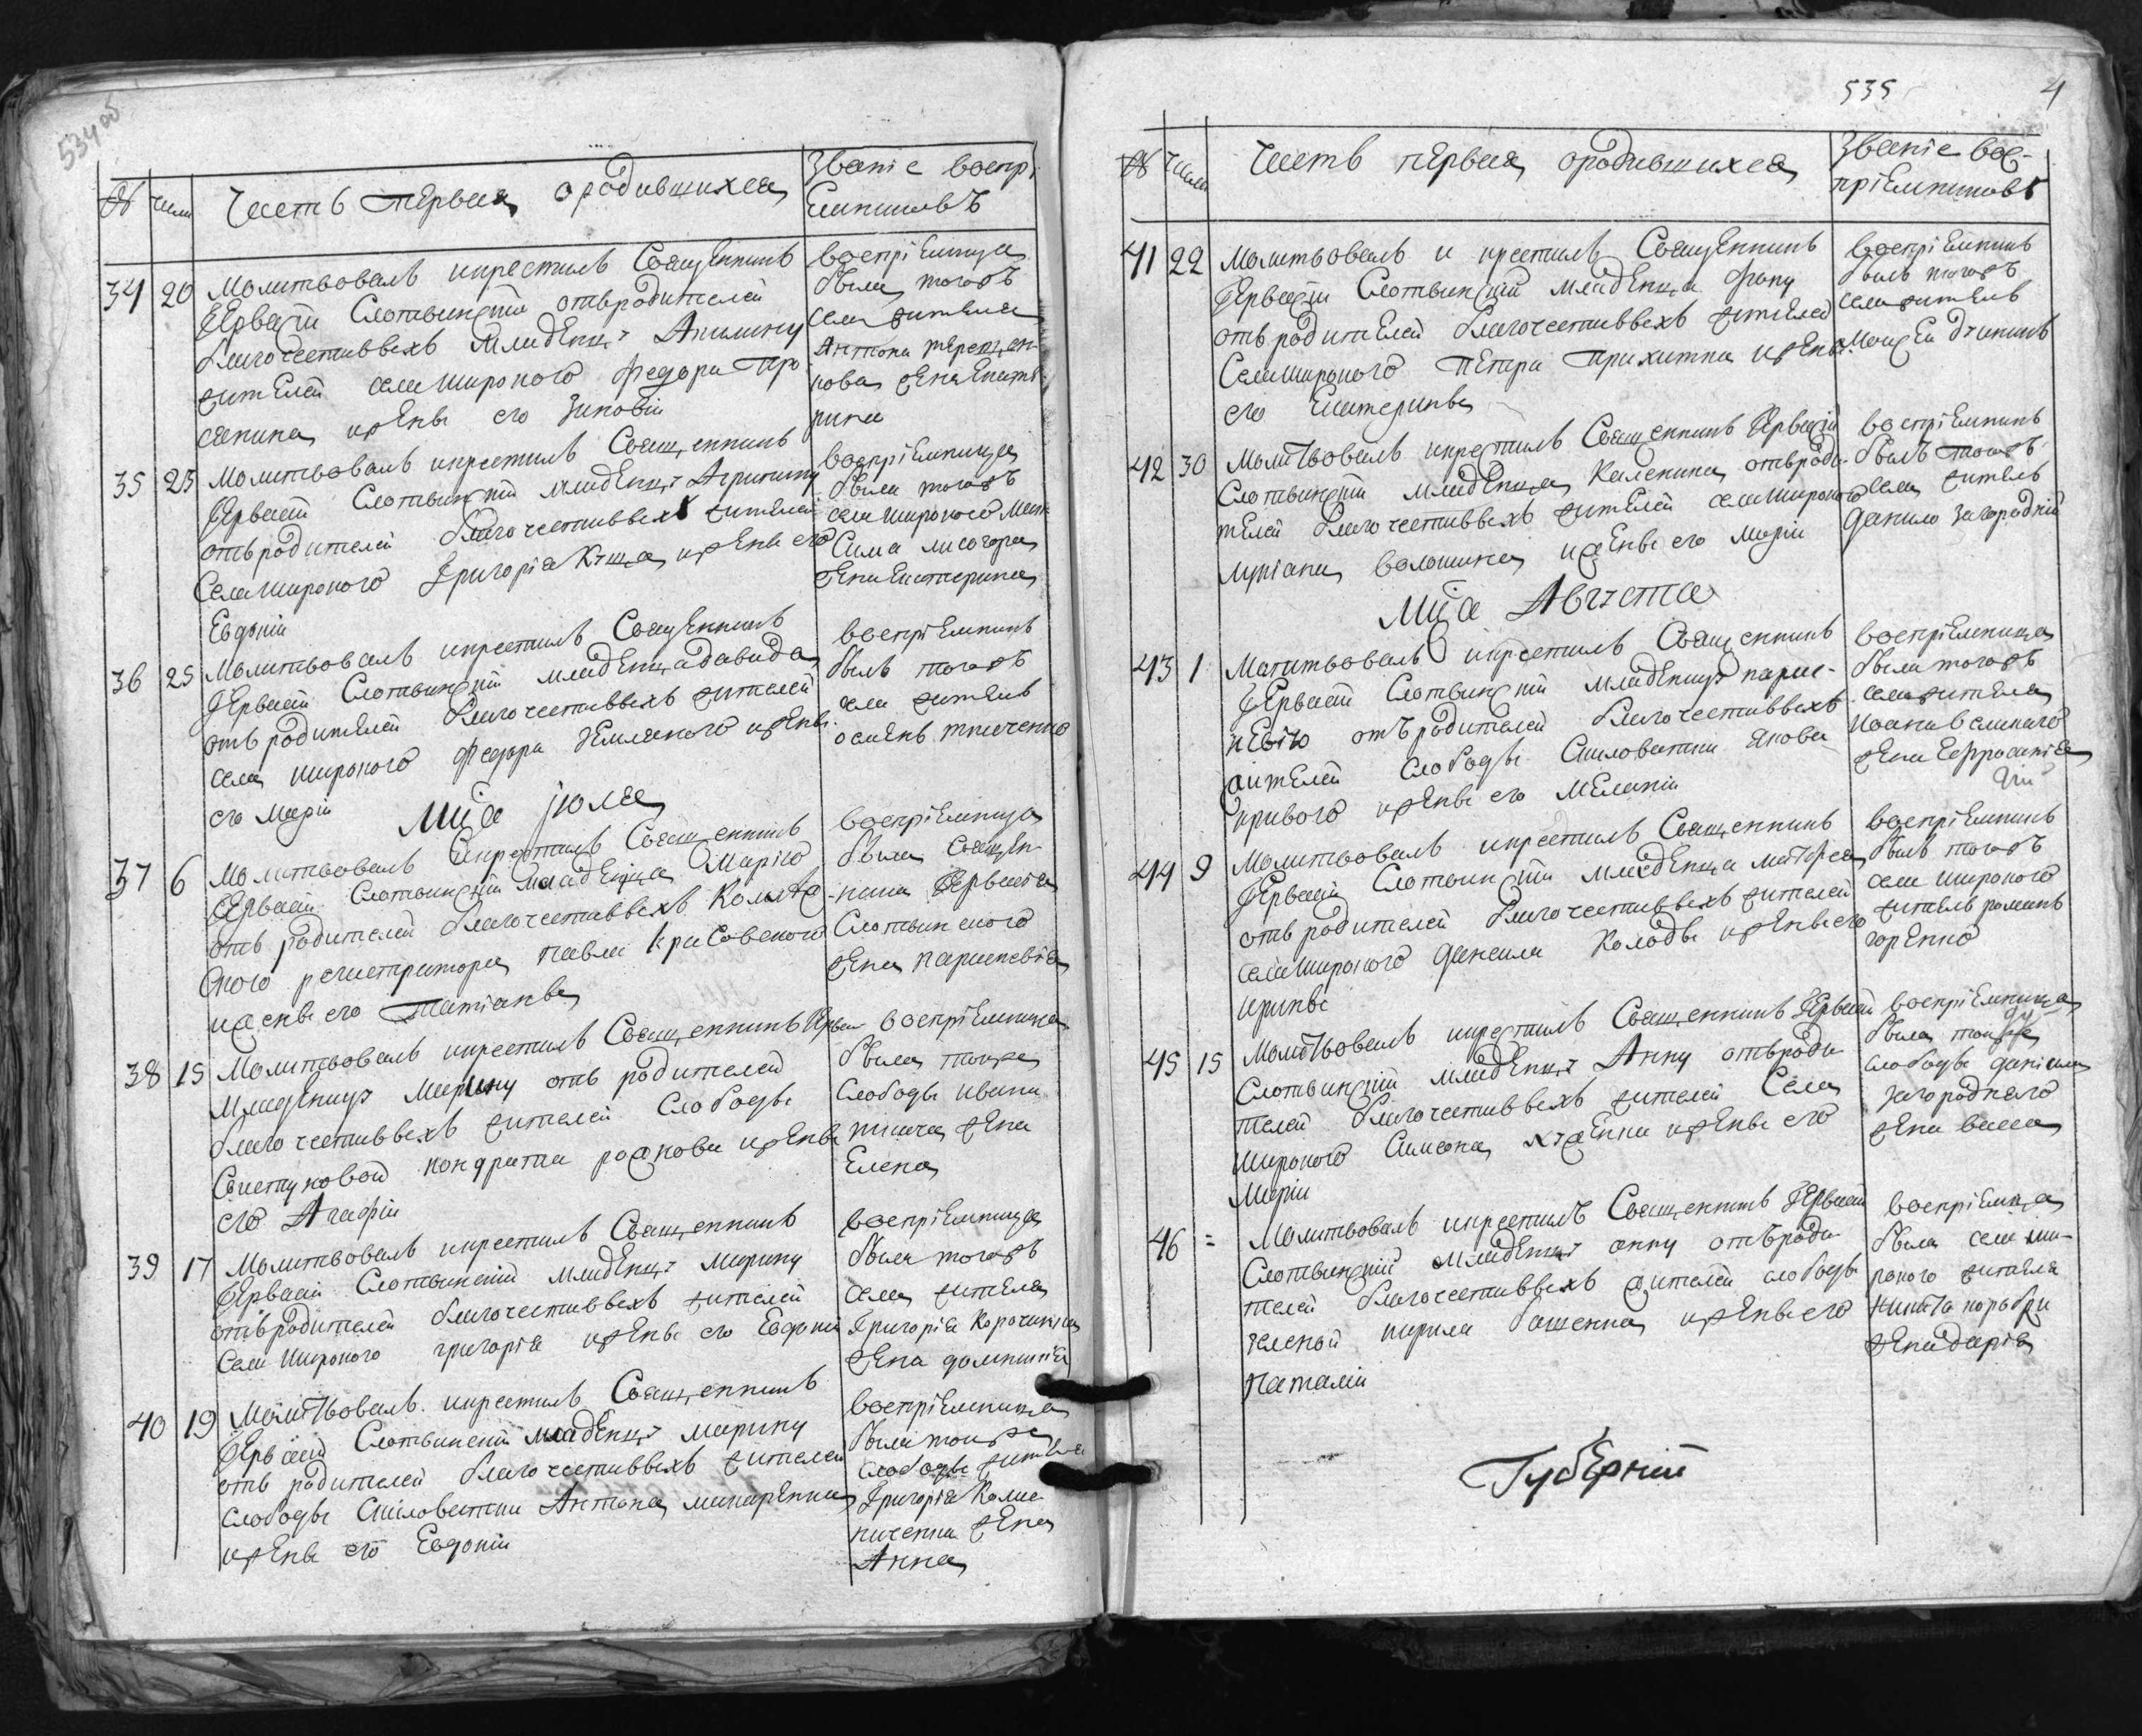 534 об
№ числ Часть первая о родившихся
Званіе воспрі
емниковъ
34 20 Молитвовалъ и крестилъ Священникъ
Гервасій Слотвинскій отъ родителей
благочестивыхъ младенцу Акилину
жителей села Широкого Федора Про
сянина и жены его Зиновіи
воспріемница
была тогожъ
села жителя
Антона терещен
кова жена Екате
рина
35 25 Молитвовалъ и крестилъ Священникъ
Гервасій Слотвинскій младенцу Агрипину
отъ родителей благочестивыхъ жителей
Села Широкого Григорія и жены его
Евдокіи
воспріемница
была тогожъ
села Широкого Мак
Сима лисогора
жена Екатерина
36 25 Молитвовалъ и крестилъ Священникъ
Гервасій Слотвинскій младенца давида
отъ родителей благочестивыхъ жителей
села широкого Федора Земляного и жены
его Маріи
воспріемникъ
былъ тогожъ
села житель
ткаченко
Мца Іюля
37 6 Молитвовалъ и крестилъ Священникъ
Гервасій Слотвинскій младенца Марію
отъ родителей благочестивыхъ
ского регистратора павла Красовского
и жены его Татіаны
воспріемница
была Священ
ника Гервасія
Слотвинского
жена параскевія
38 15 Молитвовалъ и крестилъ Священникъ Герваси
младенцу Марину отъ родителей
благочестивыхъ жителей Слободы
кондрата рожкова и жены
его Агафіи
воспріемница
была тоижъ
Слободы ивана
ткача жена
Елена
39 17 Молитвовалъ и крестилъ Священникъ
Гервасій Слотвинскій младенцу Марину
отъ родителей благочестивыхъ жителей
Села Широкого григорія и жены его Евдокіи
воспріемница
была тогожъ
села жителя
Григорія
жена домникія
40 19 Молитвовалъ и крестилъ Священникъ
Гервасій Слотвинскій младенцу марину
отъ родителей благочестивыхъ жителей
слободы Сиповатки Антона макаренка
и жены его Евдокіи
воспріемница
была тоижъ
слободы жителя
Григорія
жена
Анна
535 4
№ Числа Часть первая о родившихся
Званіе вос-
пріемниковъ
41 22 Молитвовалъ и крестилъ Священникъ
Гервасій Слотвинскій младенца Фоку
отъ родителей благочестивыхъ жителей
Села Широкого петра и жены
его Екатерины
воспріемникъ
былъ тогожъ
села житель
Моисей
42 30 Молитвовалъ и крестилъ Священникъ Гервасій
Слотвинскій младенца Каленика отъ роди
телей благочестивыхъ жителей села Широкого
лукіана волошина и жены его Маріи
воспріемникъ
былъ тогожъ
села житель
данило Загородній
Мца Августа
43 1 Молитвовалъ и крестилъ Священникъ
Гервасій Слотвинскій младенцу парас-
кевію отъ родителей благочестивыхъ
жителей слободы Сиповатки Якова
кривого и жены его Меланіи
воспріемница
была тогожъ
села жителя
Иоана
жена Ефросинія
44 9 Молитвовалъ и крестилъ Священникъ
Гервасій Слотвинскій младенца матфея
отъ родителей благочестивыхъ жителей
села Широкого данила Колоды и жены его
ирины
воспріемникъ
былъ тогожъ
села широкого
житель романъ
горенко
45 15 Молитвовалъ и крестилъ Священникъ Гервасій
Слотвинскій младенцу Анну отъ роди
телей благочестивыхъ жителей Села
Широкого Симеона и жены его
Маріи
воспріемница
была тоижъ
слободы даніила
загороднего
жена васса
46 = Молитвовалъ и крестилъ Священникъ Гервасій
Слотвинскій младенцу анну отъ роди
телей благочестивыхъ жителей слободы
зеленой кирила и жены его
Наталіи
воспріемница
была села ши-
рокого жителя
Никита
жена дарія
Губерніи